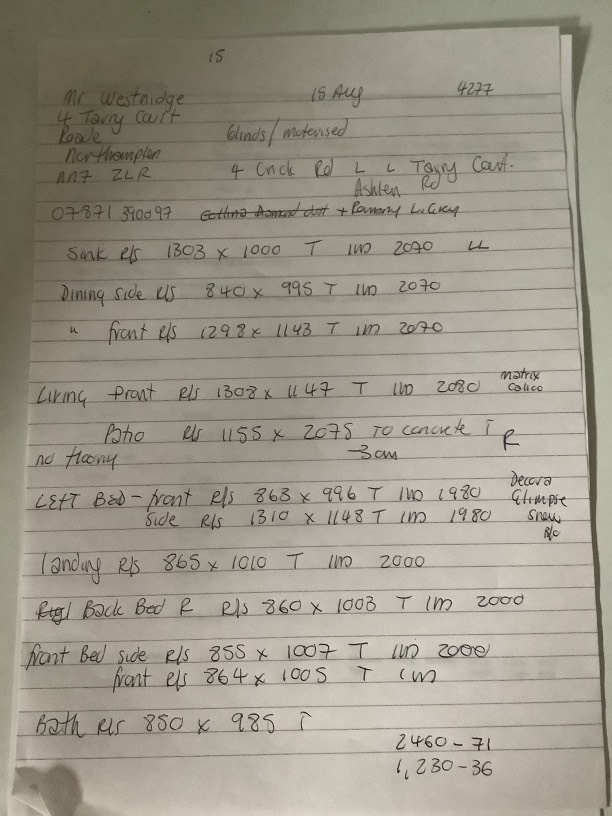 15
Mr Westnidge 15 Aug 4277
4 Tavry Cart
Roade blinds/motorised
Northampton
NN7 2LR 4 Cnck Rd L L Tavry Cart.
Ashten Rd
07871 390097
Sink R/s 1303 x 1000 T im 2070 LL
Dining side R/s 840 x 995 T im 2070
" front R/s 1298 x 1143 T im 2070
Living front R/s 1308 x 1147 T im 2080 matrix
calico
Patio R/s 1155 x 2075 To concrete T R
no floony -3cm
LEFT Bed - front R/s 863 x 996 T im 1980 Decora
Glimpse
side R/s 1310 x 1148 T im 1980 snow
B/c
landing R/s 865 x 1010 T im 2000
Back Bed R R/s 860 x 1003 T im 2000
front Bed side R/s 855 x 1007 T im 2000
front R/s 864 x 1005 T im
Bath R/s 850 x 985 T
2460 - 71
1,230 - 36